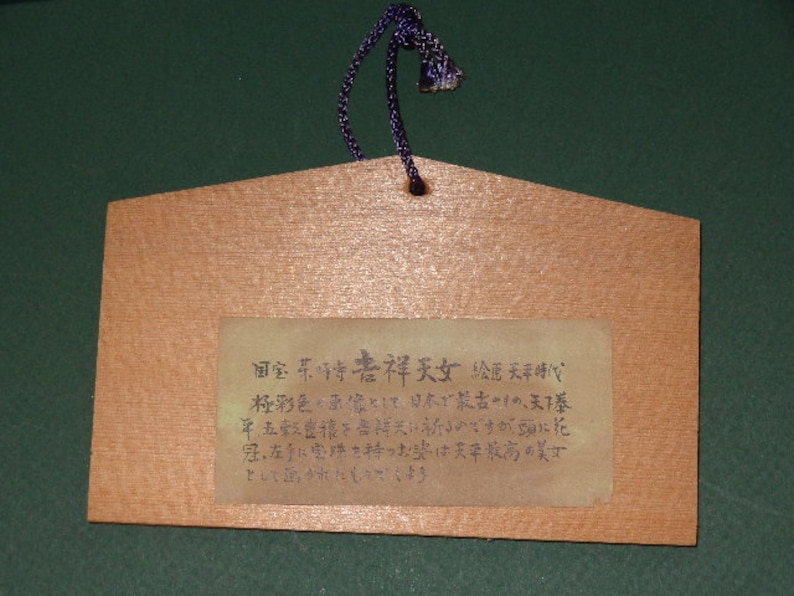 国宝 薬師寺 吉祥天女 絵画 天平時代
極彩色の画像として、日本で最古のもの、天下泰
平 五穀豊穣を吉祥天に祈るのですが 頭に花
冠、左手に宝珠を持つお姿は天平最高の美女
として画かれたもので